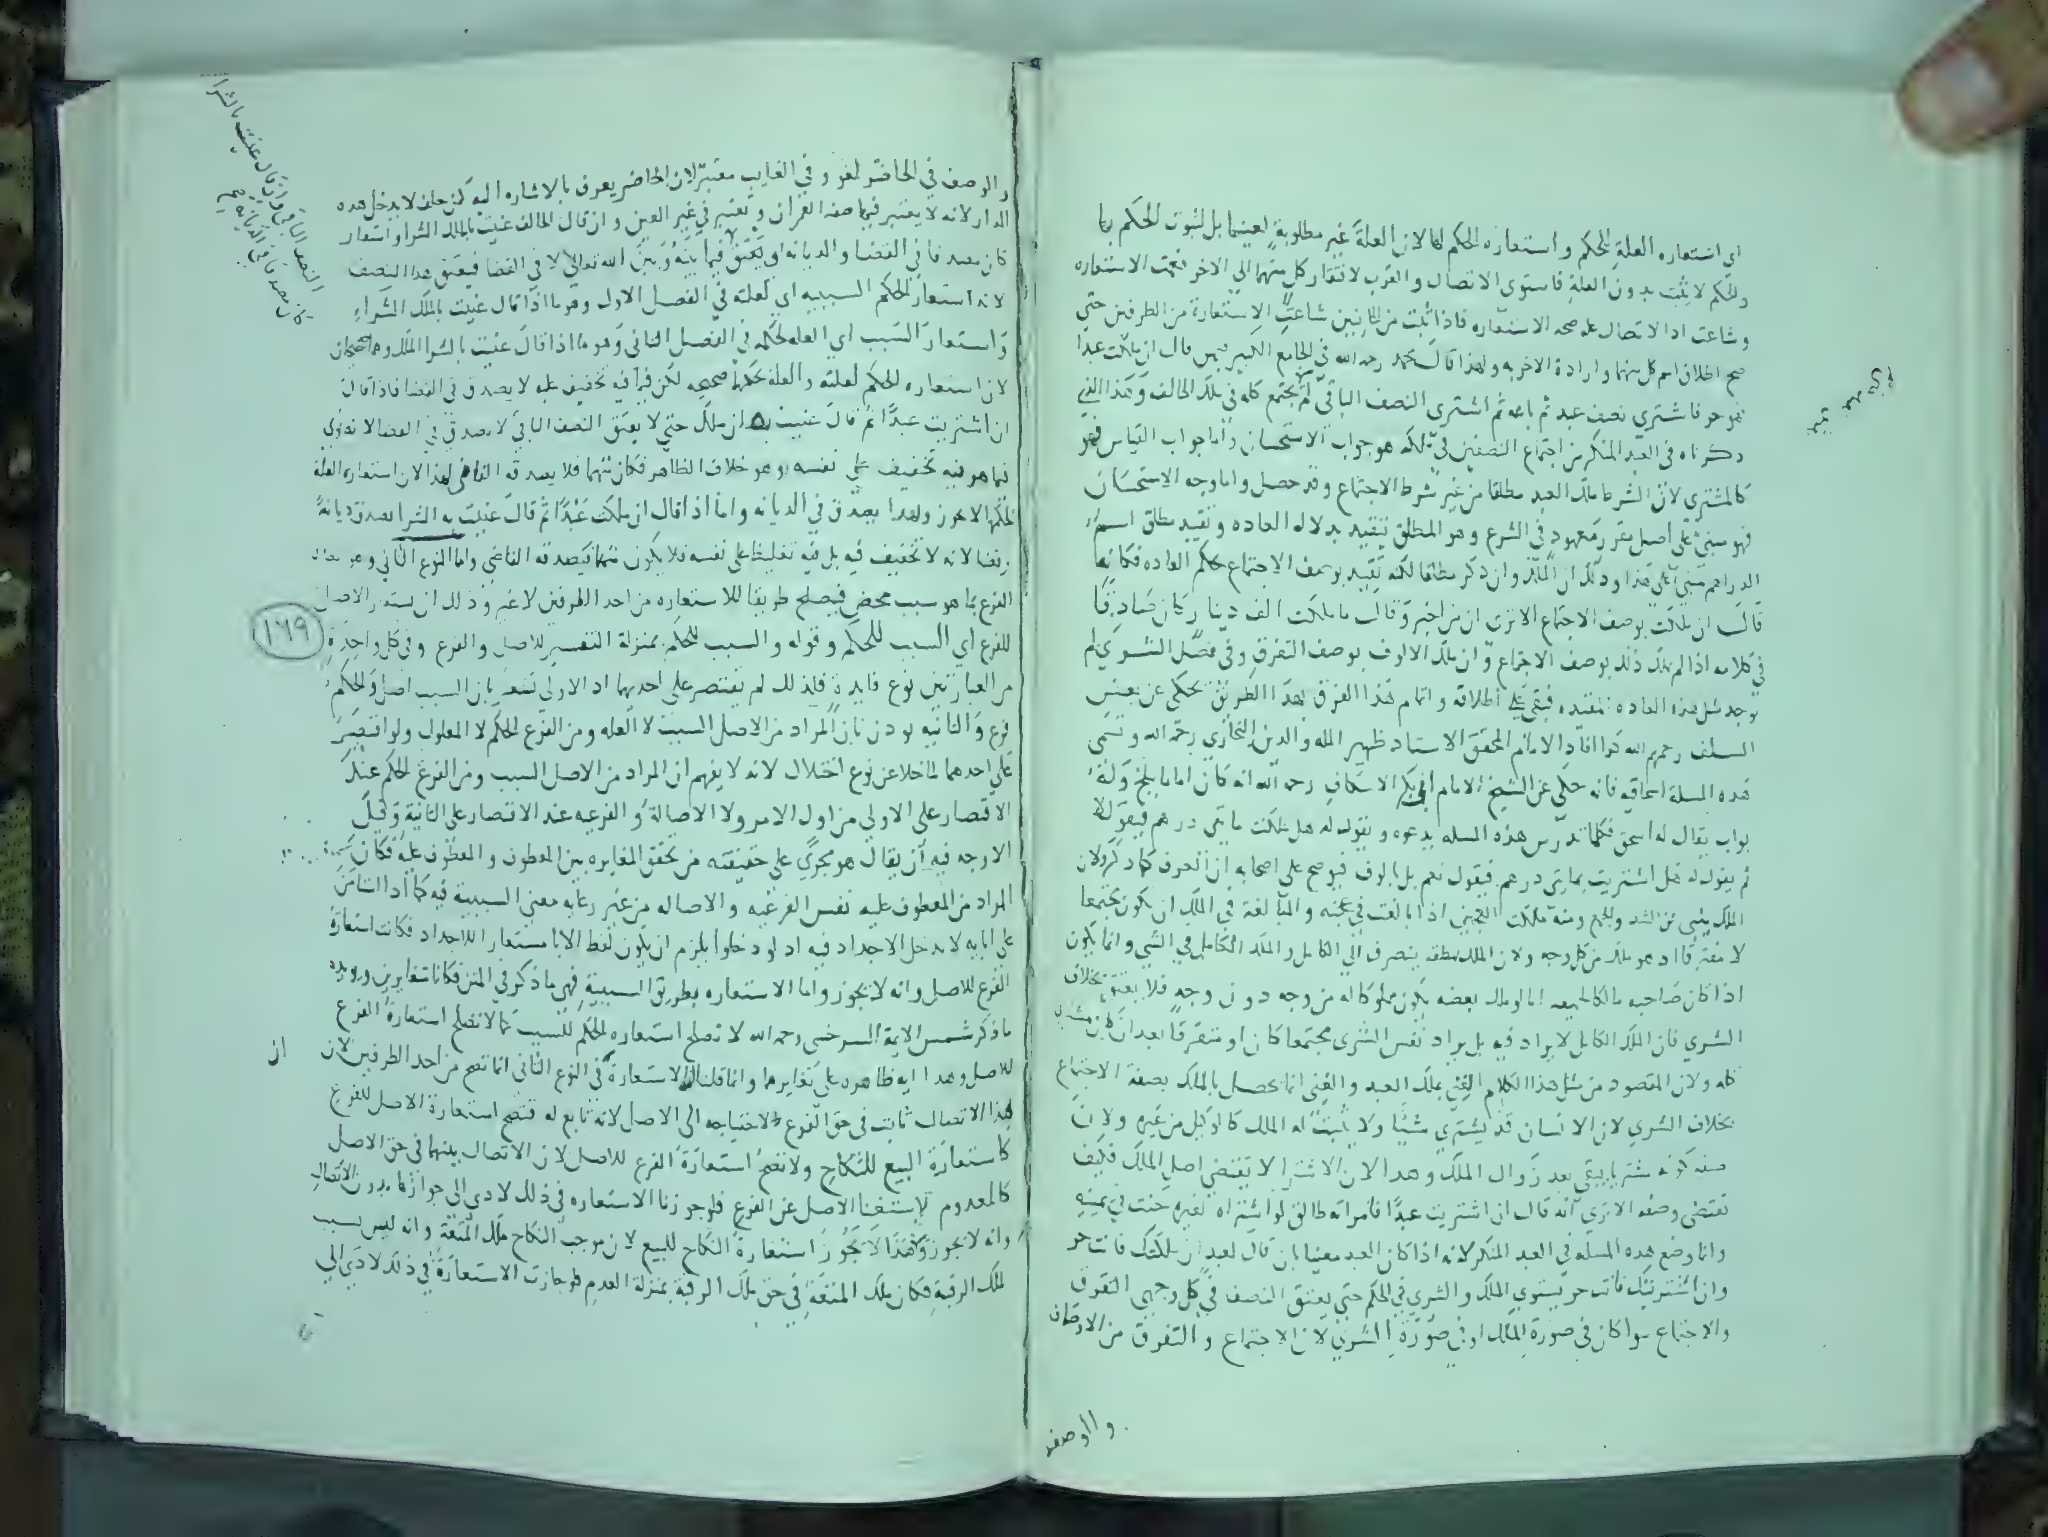 اي استعاره العلة للحكم واستعاره الحكم لها لان العلة غير مطلوبة لعينها بل لثبوت الحكم بها
والحكم لا يثبت بدون العلة فاستوى الاتصال والقرب لافتقار كل منهما الي الاخر فعمت الاستعاره
وشاعت اذ الاتصال عله صحه الاستعاره فاذا ثبت من الجانبين شاعت الاستعارة من الطرفين حتي
صح اطلاق اسم كل منهما وارادة الاخر به ولهذا قال محمد رحمه الله في الجامع الكبير فيمن قال ان ملكت عبدا
فهو حر فاشتري نصف عبد ثم باعه ثم اشترى النصف الباقي لم يجتمع كله في ملك الحالف وهذا الذي
ذكرناه في العبد المنكر من اجتماع النصفين في ملكه هو جواب الاستحسان واما جواب القياس فهو
كالمشتري لان الشرط ملك العبد مطلقا من غير شرط الاجتماع وقد حصل واما وجه الاستحسان
فهو مبني على اصل مقرر معهود في الشرع وهو المطلق يتقيد بدلاله العاده وتقييد مطلق اسم
الدراهم مبني علي هذا وذلك ان الملك وان ذكر مطلقا لكنه تقيد بوصف الاجتماع بحكم العاده فكانه
قال ان ملكت بوصف الاجتماع الا ترى ان من اخبر وقال ما ملكت الف دينار كان صادقا
في كلامه اذا لم يملك ذلك بوصف الاجتماع وان ملك الالوف بوصف التفرق وفي فصل الشري لم
توجد مثل هذه العاده المقيده فبقي علي اطلاقه واتمام هذا الفرق بهذا الطريق يحكى عن بعض
السلف رحمهم الله كذا افاد الامام المحقق الاستاد ظهير الملة والدين البخاري رحمه الله وتسمى
هذه المسلة اسحاقيه فانه حكي عن الشيخ الامام ابي بكر الاسكاف رحمه الله انه كان اماما ببلخ وله
بواب يقال له اسحق فكلما تدرس هذه المسله يدعوه ويقول له هل ملكت مايتي درهم فيقول لا
ثم يقول له هل اشتريت بمايتي درهم فيقول نعم بل بالوف فيوضح علي اصحابه ان العرف كما ذكر ولان
الملك ينبي عن الشد والجمع ومنه ملكت العجين اذا بالغت في عجنه والمبالغة في الملك ان يكون مجتمعا
لا مفترقا اذ هو ملك من كل وجه ولان الملك مطلقه ينصرف الي الكامل والملك الكامل في الشي وانما يكون
اذا كان صاحبه مالكا لجميعه اما لو ملك بعضه يكون مملوكا له من وجه دون وجه فلا يعتق بخلاف
الشري فان الملك الكامل لا يراد فيه بل يراد نفس الشرى مجتمعا كان او متفرقا بعد ان كان مشتري
كله ولان المقصود من مثل هذا الكلام الغني بملك العبد والغني انما يحصل بالملك بصفة الاجتماع
بخلاف الشري لان الانسان قد يشتري شيئا ولا يثبت له الملك كالوكيل من غيره ولان
صفه كونه مشتريا يبقى بعد زوال الملك وهذا لان الاشترا لا يقتضي اصل الملك فكيف
تقتضي وصفه الا تري انه قال ان اشتريت عبدا فامراته طالق لو اشتراه لغيره حنث في يمينه
وانما وضع هذه المسله في العبد المنكر لانه اذا كان العبد معينا بان قال لعبد ان ملكتك فانت حر
وان اشتريتك فانت حر يستوي الملك والشري في الحكم حتي يعتق النصف في كل وجهي التفرق
والاجتماع سوا كان في صورة الملك او في صورة الشري لان الاجتماع والتفرق من الاوصاف
والوصف
والوصف في الحاضر لغو وفي الغايب معتبر لان الحاضر يعرف بالاشاره اليه كمن حلف لا يدخل هذه
الدار لانه لا يعتبر فيها صفه العمران وتعتبر في غير العين وان قال الحالف عنيت بالملك الشرا واستعار
كان مصدقا في القضا والديانه اي يعتق فيما بينه وبين الله تعالي لا في القضا فيعتق هذا النصف
لانه استعار الحكم لسببه اي لعلته في الفصل الاول وهو ما اذا قال عنيت بالملك الشراء
واستعار السبب اي العله لحكمه في الفصل الثاني وهو ما اذا قال عنيت بالشرا الملك وهما صحيحان
لان استعاره الحكم لعلته والعلة لحكمها صحيحه لكن فيما فيه تخفيف عليه لا يصدق في القضا فاذا قال
ان اشتريت عبدا ثم قال عنيت به ان ملك حتي لا يعتق النصف الباقي لا يصدق في القضا لانه نوي
فيما هو فيه تخفيف علي نفسه وهو خلاف الظاهر فكان متهما فلا يصدقه القاضي لهذا لا لان استعاره العلة
لحكمها لا يجوز ولهذا يصدق في الديانه واما اذا قال ان ملكت عبدا ثم قال عنيت به الشرا يصدق ديانة
وقضا لانه لا تخفيف فيه بل فيه تغليظ على نفسه فلا يكون متهما فيصدقه القاضي واما النوع الثاني وهو
الفرع بما هو سبب محض فيصلح طريقا للاستعاره من احد الطرفين لا غير وذلك ان يستعير الاصل
١٦٩
للفرع اي السبب للحكم وقوله والسبب للحكم بمنزلة التفسير للاصل والفرع وفي كل واحدة
من العبارتين نوع فايدة فلذلك لم يقتصر على احديهما اذ الاولى تشعر بان السبب اصل والحكم
فرع والثانيه توذن بان المراد من الاصل السبب لا العله ومن الفرع الحكم لا المعلول ولو اقتصر
علي احدهما لما خلا عن نوع اختلال لانه لا يفهم ان المراد من الاصل السبب ومن الفرع الحكم عند
الاقتصار على الاولى من اول الامر ولا الاصالة والفرعيه عند الاقتصار على الثانية وقيل
الاوجه فيه ان يقال هو مجري على حقيقته من تحقق المغايره بين المعطوف والمعطوف عليه فكان
المراد من المعطوف عليه نفس الفرعيه والاصاله من غير رعايه معني السببية فيه كما اذا استامن
على ابايه لا يدخل الاجداد فيه اذ لو دخلوا يلزم ان يكون لفظ الابا مستعارا للاجداد فكانت استعارة
الفرع للاصل وانه لا يجوز واما الاستعاره بطريق السببية فهي ما ذكر في المتن فكانا متغايرين ويويده
ما ذكر شمس الايمة السرخسي رحمه الله لا تصلح استعاره الحكم للسبب كما لا تصلح استعارة الفرع
للاصل وهذا ايه ظاهره على تغايرهما وانما قلنا ان الاستعارة في النوع الثاني انما تصح من احد الطرفين لان
هذا الاتصال ثابت في حق الفرع لاحتياجه الى الاصل لانه تابع له فتصح استعارة الاصل للفرع
كاستعارة البيع للنكاح ولا تصح استعارة الفرع للاصل لان الاتصال بينهما في حق الاصل
كالمعدوم لاستغنا الاصل عن الفرع فلو جوزنا الاستعاره في ذلك لادى الى جوازها بدون الاتصال
وانه لا يجوز ولهذا لا يجوز استعارة النكاح للبيع لان موجب النكاح ملك المتعة وانه ليس بسبب
لملك الرقبة فكان ملك المتعة في حق ملك الرقبة بمنزلة العدم فلو جازت الاستعارة في ذلك لادي الي
النصف الباقي وان قال عنيت بالشرا
كان مصدقا في الديانة صح
ان